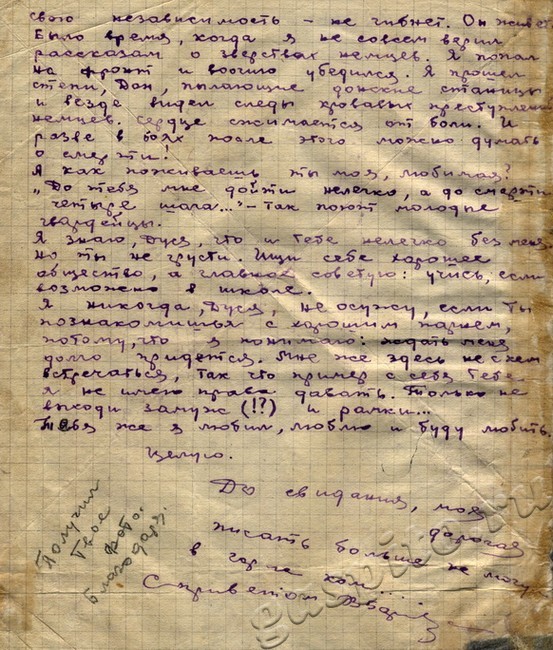 свою независимость – не гибнет. Он живет.
Было время, когда я не совсем верил
рассказам о зверствах немцев. Я попал
на фронт и воочию убедился. Я прошел
степи, Дон, пылающие донские станицы
и везде видел следы кровавых преступлений
немцев. Сердце сжимается от боли. И
разве в боях после этого можно думать
о смерти!
А как поживаешь ты моя, любимая?
„До тебя мне дойти нелегко, а до смерти
четыре шага..." – так поют молодые
гвардейцы.
Я знаю, Дуся, что и тебе нелегко без меня
но ты не грусти. Ищи себе хорошее
общество, а главное советую: учись, если
возможно в школе.
Я никогда, Дуся, не осужу, если ты
познакомишься с хорошим парнем,
потому, что я понимаю: ждать меня
долго придется. Мне же здесь не с кем
встречаться, так что пример с себя тебе
я не имею права давать. Только не
выходи замуж (!?) и рамки...
Тебя же я любил, люблю и буду любить.
Целую.
До свидания, моя
дорогая
писать больше не могу
в горле ком....
С приветом
Получил
Твое
фото.
Благодарю.
gwpito.ru